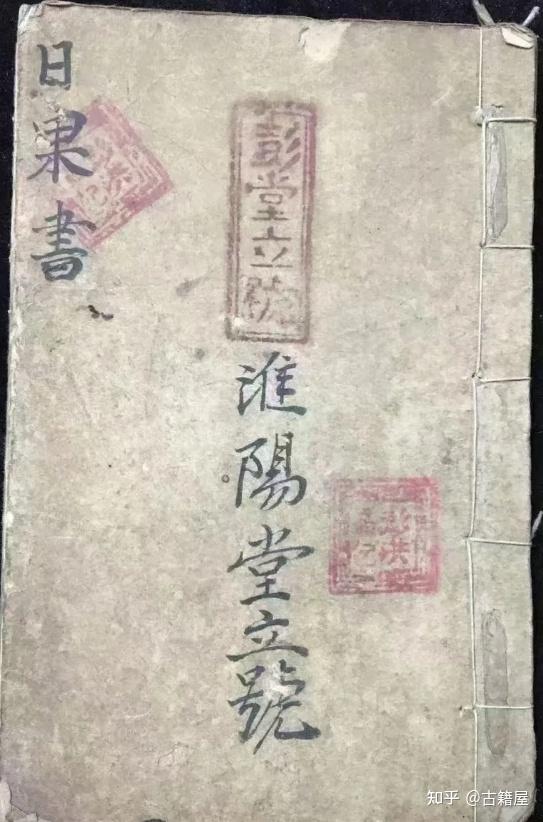 日果書
彭堂立號
淮陽堂立號
知乎 @古籍屋